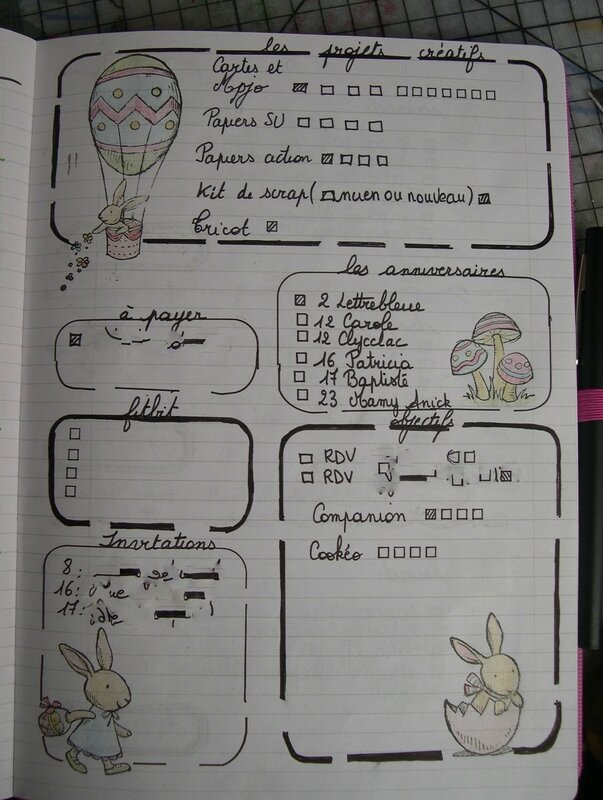 les projets créatifs
Cartes et
Mojo
Papiers SU
Papiers action
Kit de scrap (ancien ou nouveau)
Tricot
les anniversaires
2 Lettrebleue
12 Carole
12 Clycclac
16 Patricia
17 Baptiste
23 Mamy Anick
à payer
fitbit
objectifs
RDV
RDV
Companion
Cookéo
Invitations
8:
16:
17: